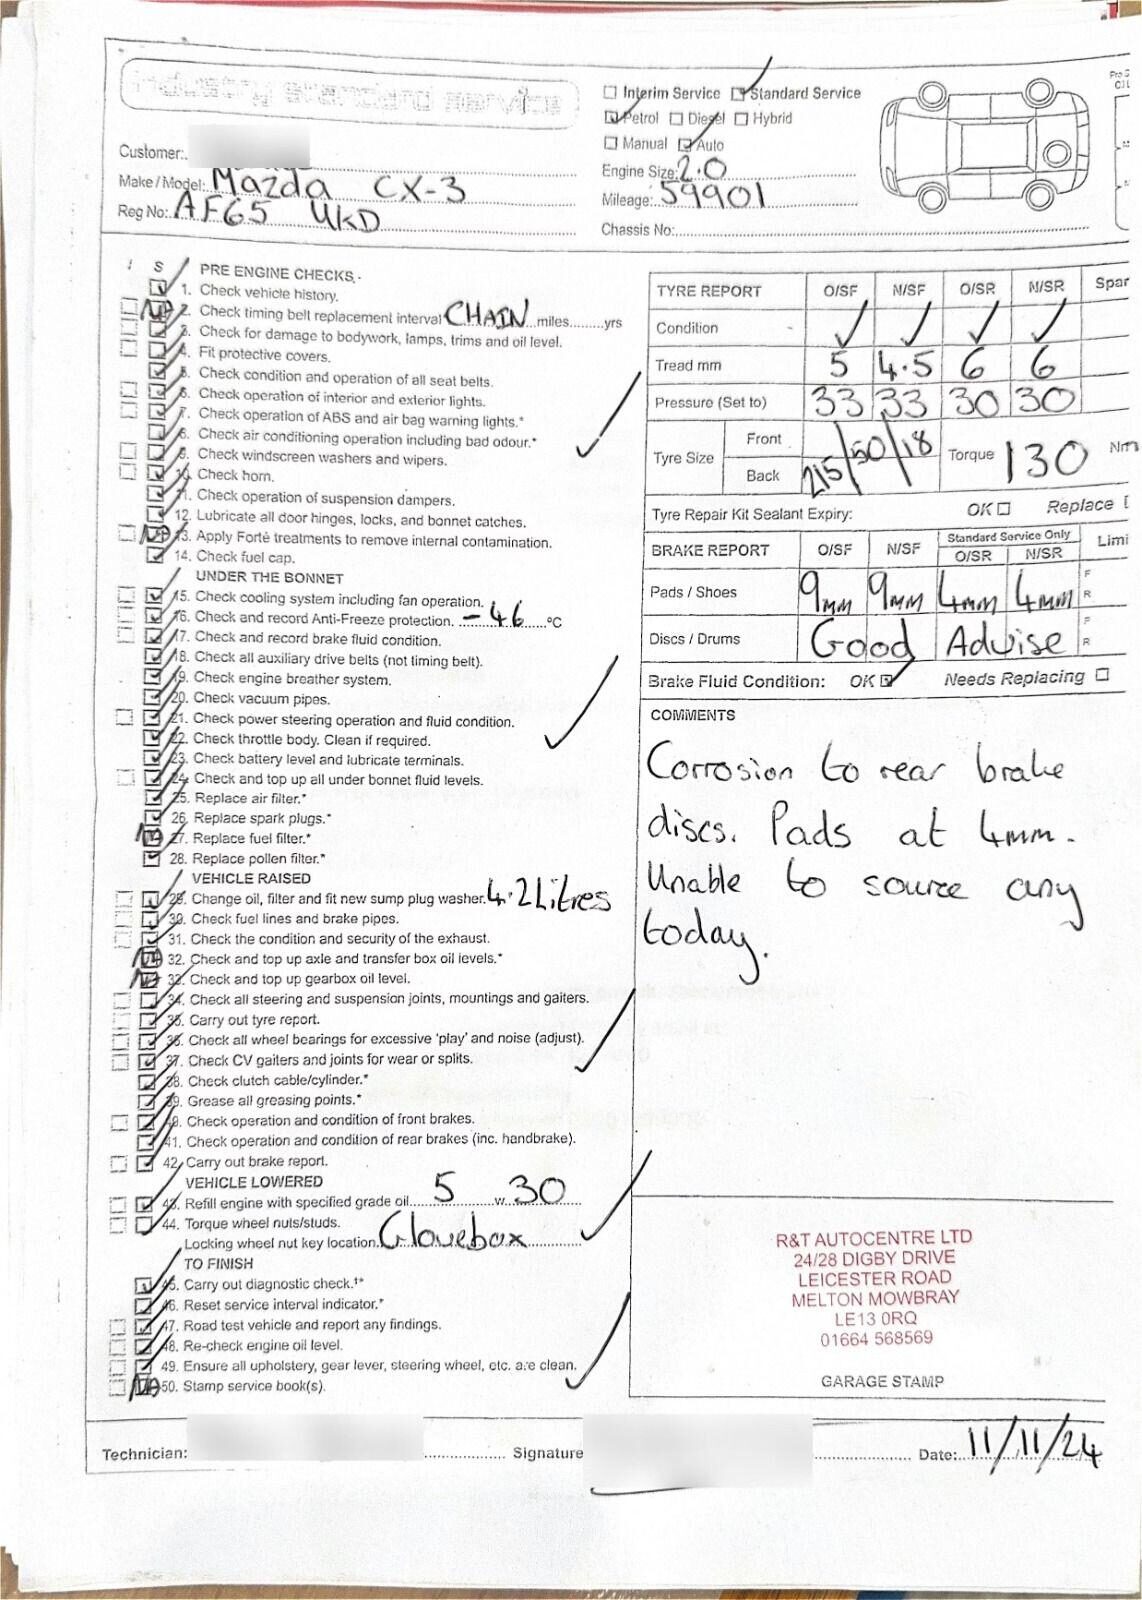 Interim Service Standard Service
Petrol Diesel Hybrid
Manual Auto
Engine Size: 2.0
Mileage: 59901
Chassis No:
Customer:
Make/Model: Mazda CX-3
Reg No: AF65 UKD
S PRE ENGINE CHECKS
1. Check vehicle history.
NA 2. Check timing belt replacement interval CHAIN miles yrs
3. Check for damage to bodywork, lamps, trims and oil level.
4. Fit protective covers.
5. Check condition and operation of all seat belts.
6. Check operation of interior and exterior lights.
7. Check operation of ABS and air bag warning lights.*
8. Check air conditioning operation including bad odour.*
9. Check windscreen washers and wipers.
10. Check horn.
11. Check operation of suspension dampers.
12. Lubricate all door hinges, locks, and bonnet catches.
NA 13. Apply Forté treatments to remove internal contamination.
14. Check fuel cap.
UNDER THE BONNET
15. Check cooling system including fan operation.
16. Check and record Anti-Freeze protection. -46 °C
17. Check and record brake fluid condition.
18. Check all auxiliary drive belts (not timing belt).
19. Check engine breather system.
20. Check vacuum pipes.
21. Check power steering operation and fluid condition.
22. Check throttle body. Clean if required.
23. Check battery level and lubricate terminals.
24. Check and top up all under bonnet fluid levels.
25. Replace air filter.*
26. Replace spark plugs.*
NA 27. Replace fuel filter.*
28. Replace pollen filter.*
VEHICLE RAISED
29. Change oil, filter and fit new sump plug washer. 4.2 Litres
30. Check fuel lines and brake pipes.
31. Check the condition and security of the exhaust.
NA 32. Check and top up axle and transfer box oil levels.*
NA 33. Check and top up gearbox oil level.
34. Check all steering and suspension joints, mountings and gaiters.
35. Carry out tyre report.
36. Check all wheel bearings for excessive 'play' and noise (adjust).
37. Check CV gaiters and joints for wear or splits.
38. Check clutch cable/cylinder.*
39. Grease all greasing points.*
40. Check operation and condition of front brakes.
41. Check operation and condition of rear brakes (inc. handbrake).
42. Carry out brake report.
VEHICLE LOWERED
43. Refill engine with specified grade oil 5 w 30
44. Torque wheel nuts/studs.
Locking wheel nut key location. Glovebox
TO FINISH
45. Carry out diagnostic check.†*
46. Reset service interval indicator.*
47. Road test vehicle and report any findings.
48. Re-check engine oil level.
49. Ensure all upholstery, gear lever, steering wheel, etc. are clean.
NA 50. Stamp service book(s).
TYRE REPORT O/SF N/SF O/SR N/SR Spar
Condition
Tread mm 5 4.5 6 6
Pressure (Set to) 33 33 30 30
Tyre Size Front Back 215/50/18 Torque 130 Nm
Tyre Repair Kit Sealant Expiry: OK Replace
BRAKE REPORT O/SF N/SF Standard Service Only O/SR N/SR Limi
Pads / Shoes 9mm 9mm 4mm 4mm F R
Discs / Drums Good Advise F R
Brake Fluid Condition: OK Needs Replacing
COMMENTS
Corrosion to rear brake
discs. Pads at 4mm.
Unable to source any
today.
R&T AUTOCENTRE LTD
24/28 DIGBY DRIVE
LEICESTER ROAD
MELTON MOWBRAY
LE13 0RQ
01664 568569
GARAGE STAMP
Technician: Signature Date: 11/11/24